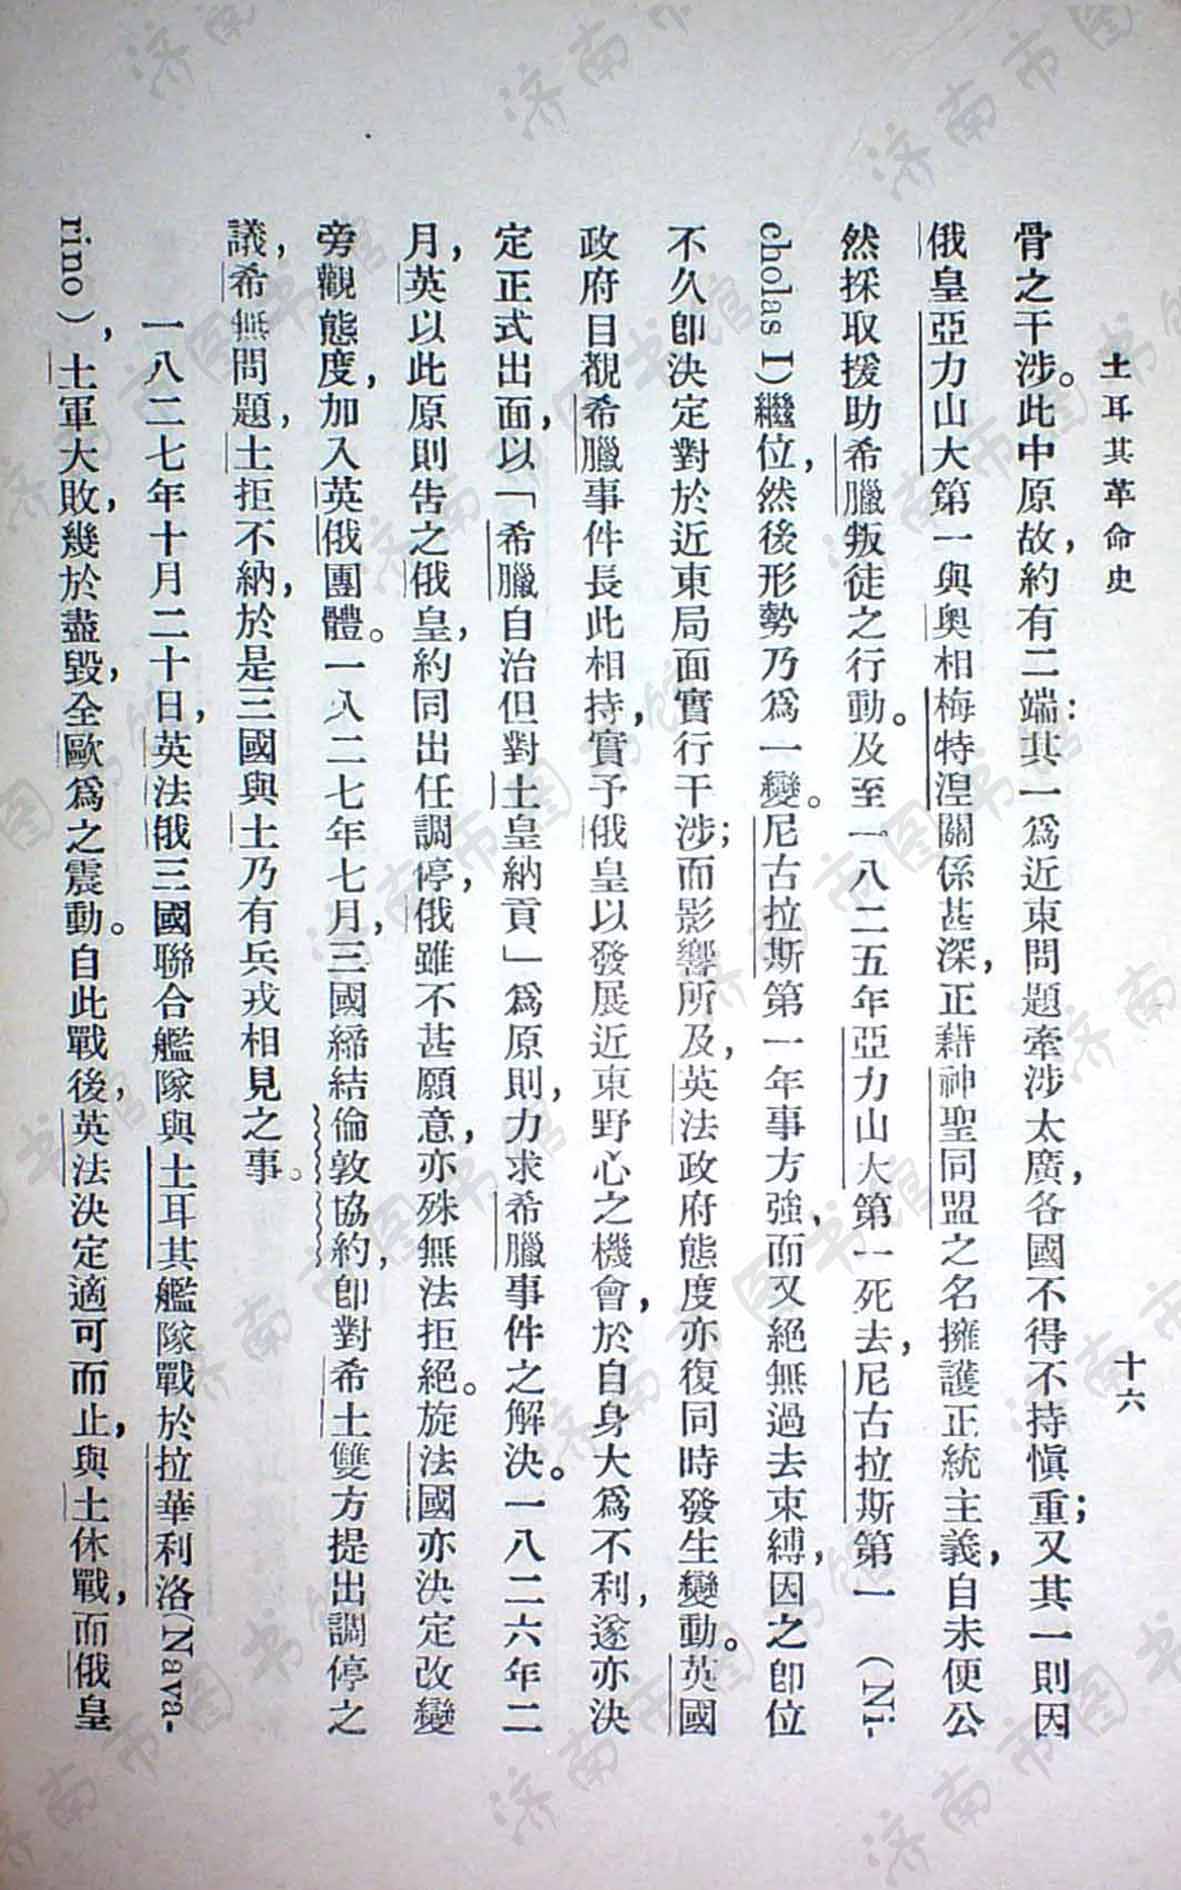 土耳其革命史
十六
骨之干涉。此中原故，約有二端：其一爲近東問題牽涉太廣，各國不得不持愼重；又其一則因
俄皇亞力山大第一與奥相梅特涅關係甚深，正藉神聖同盟之名擁護正統主義，自未便公
然採取援助希臘叛徒之行動。及至一八二五年亞力山大第一死去，尼古拉斯第一（Ni-
cholas I）繼位，然後形勢乃爲一變。尼古拉斯第一年事方強，而又絕無過去束縛，因之卽位
不久卽決定對於近東局面實行干涉；而影響所及，英法政府態度亦復同時發生變動。英國
政府目覩希臘事件長此相持，實予俄皇以發展近東野心之機會，於自身大爲不利，遂亦決
定正式出面，以「希臘自治但對土皇納貢」爲原則，力求希臘事件之解決。一八二六年二
月，英以此原則告之俄皇，約同出任調停，俄雖不甚願意，亦殊無法拒絕。旋法國亦決定改變
旁觀態度，加入英俄團體。一八二七年七月，三國締結倫敦協約，卽對希土雙方提出調停之
議，希無問題，土拒不納，於是三國與土乃有兵戎相見之事。
一八二七年十月二十日，英法俄三國聯合艦隊與土耳其艦隊戰於拉華利洛（Nava-
rino），土軍大敗，幾於盡毀，全歐爲之震動。自此戰後，英法決定適可而止，與土休戰，而俄皇
济南市图书馆